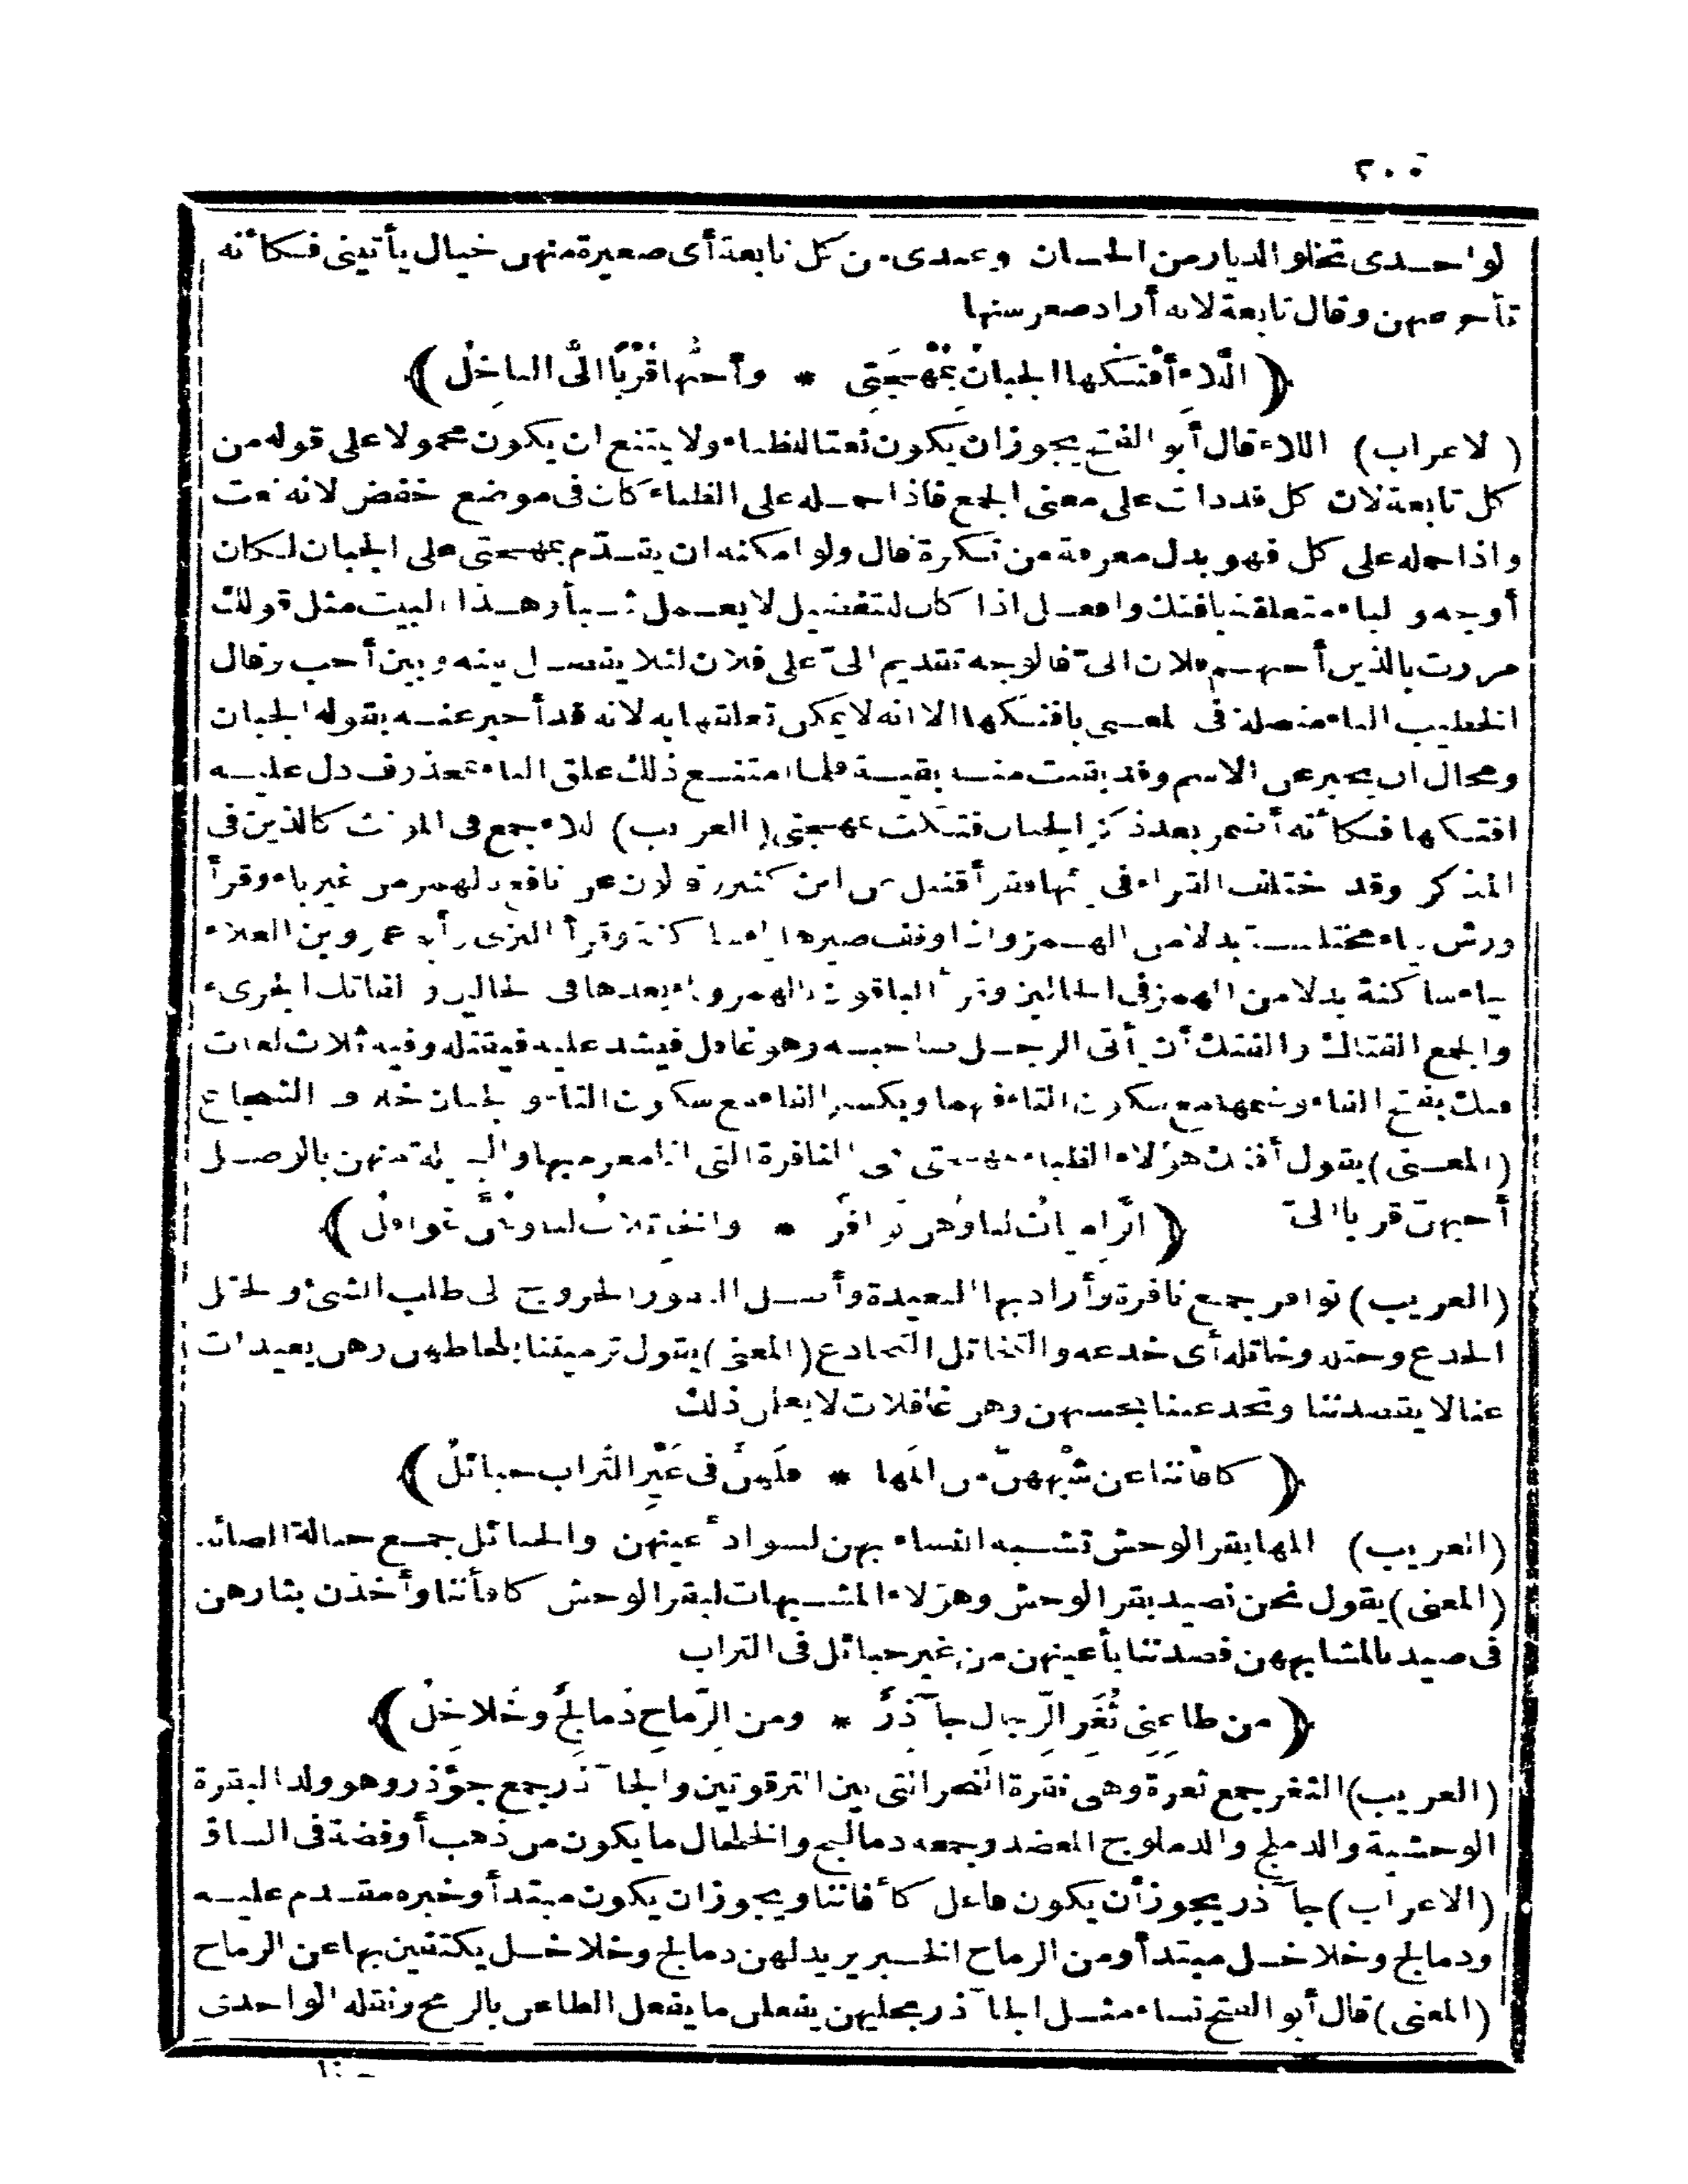 ٢٠٠
الواحدى تخلو الديار من الحسان وعندى من كل تابعة أى صغيرة منهن خيال يأتينى فكأنه
تأخر عنهن وقال تابعة لانه أراد صغر سنها
﴿ اللاء أفتكها الجبان بمهجتى * وأحبها قربا الى الباخل ﴾
(الاعراب) اللاء قال أبو الفتح يجوز ان يكون نعتا للظباء ولا يمتنع ان يكون محمولا على قوله من
كل تابعة لان كل قد دلت على معنى الجمع فاذا حمله على الظباء كان فى موضع خفض لانه نعت
واذا حمله على كل فهو بدل معرفة من نكرة قال ولو امكنه ان يتقدّم بمهجتى على الجبان لكان
أوجه والباء متعلقة بافتك وافعل اذا كان للتفضيل لا يعمل شيأ وهذا البيت مثل قولك
مررت بالذين أحبهم فلان الىّ فالوجه تقديم الىّ على فلان لئلا يفصل بينه وبين أحب وقال
الخطيب الباء متصلة فى المعنى بافتكها الا انه لا يمكن تعلقها به لانه قد أخبر عنه بقوله الجبان
ومحال ان يخبر عن الاسم وقد بقيت منه بقية فلما امتنع ذلك علق الباء بمحذوف دل عليه
افتكها فكأنه أضمر بعد ذكر الجبان فتكت بمهجتى (الغريب) اللاء جمع فى المؤنث كالذين فى
المذكر وقد اختلف القراء فى
ورش بياء مختلسة بدلا من الهمز واذا وقف صيرها ياء ساكنة وقرأ البزى وأبو عمرو بن العلاء
بياء ساكنة بدلا من الهمز فى الحالين وقرأ الباقون بالهمز وياء بعدها فى الحالين والفاتك الجرىء
والجمع الفتاك والفتك أن يأتى الرجل صاحبه وهو غافل فيشد عليه فيقتله وفيه ثلاث لغات
فتك بفتح الفاء وضمها مع سكون التاء فيهما وبكسر الفاء مع سكون التاء والجبان خلاف الشجاع
(المعنى) يقول أفتك هؤلاء الظباء بمهجتى هى النافرة التى انا مغرم بها والبخيلة منهن بالوصل
أحبهنّ قربا الىّ ﴿ الراميات لنا وهن نوافر * والخاتلات لنا وهنّ غوافل ﴾
(الغريب) نوافر جمع نافرة وأراد بها البعيدة وأصل النفور الخروج الى طلب الشئ والختل
الخدع وختله وخاتله أى خدعه والتخاتل التخادع (المعنى) يقول ترميننا بلحاظهن وهن بعيدات
عنا لا يقصدننا وتخدعننا بحسنهن وهن غافلات لا يعلمن ذلك
﴿ كافأننا عن شبههنّ من المها * فلهنّ فى غير التراب حبائل ﴾
(الغريب) المها بقر الوحش تشبه النساء بهن لسواد أعينهن والحبائل جمع حبالة الصائد
(المعنى) يقول نحن نصيد بقر الوحش وهؤلاء المشبهات لبقر الوحش كافأننا وأخذن بثارهن
فى صيدنا لمشابههن فصدننا بأعينهن من غير حبائل فى التراب
﴿ من طاعنى ثغر الرّجال جآذر * ومن الرّماح دمالج وخلاخل ﴾
(الغريب) الثغر جمع ثغرة وهى نقرة النحر التى بين الترقوتين والجآذر جمع جؤذر وهو ولد البقرة
الوحشية والدملج والدملوج المعضد وجمعه دماليج والخلخال ما يكون من ذهب أو فضة فى الساق
(الاعراب) جآذر يجوز أن يكون فاعل كافأننا ويجوز ان يكون مبتدأ وخبره مقدم عليه
ودمالج وخلاخل مبتدأ ومن الرماح الخبر يريد لهن دمالج وخلاخل يكتفين بها عن الرماح
(المعنى) قال أبو الفتح نساء مثل الجآذر بحليهن يفعلن ما يفعل الطاعن بالرمح ونقله الواحدى